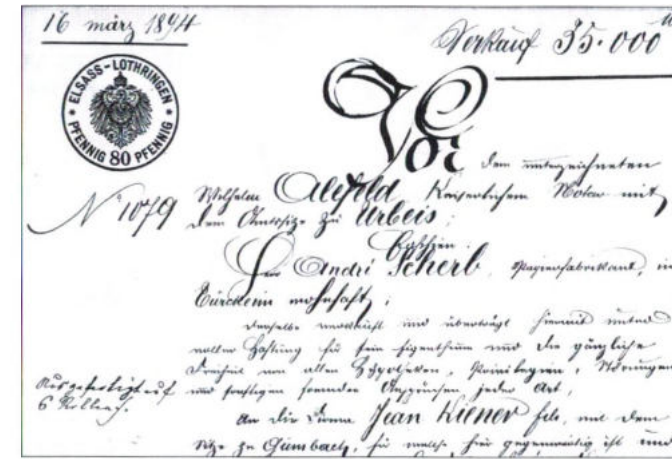 16 märz 1894
Verkauf 35.000
ELSASS-LOTHRINGEN
PFENNIG 80 PFENNIG
Vor dem unterzeichneten
N° 1079
Wilhelm Alefeld Kaiserlichem Notar mit
dem Amtssitze zu Urbeis,
Herr André Scherb, Papierfabrikant, in
wohnhaft,
derselbe verkauft und überträgt hiermit unter
voller Haftung für sein Eigenthum und die gänzliche
Freiheit von allen Hypotheken, Privilegien, Störungen
und sonstigen fremden Ansprüchen jeder Art,
Ausgefertigt auf
6 Rollen.
An die Firma Jean Kiener fils, mit dem
Sitze zu Günsbach, für welche hier gegenwärtig ist und